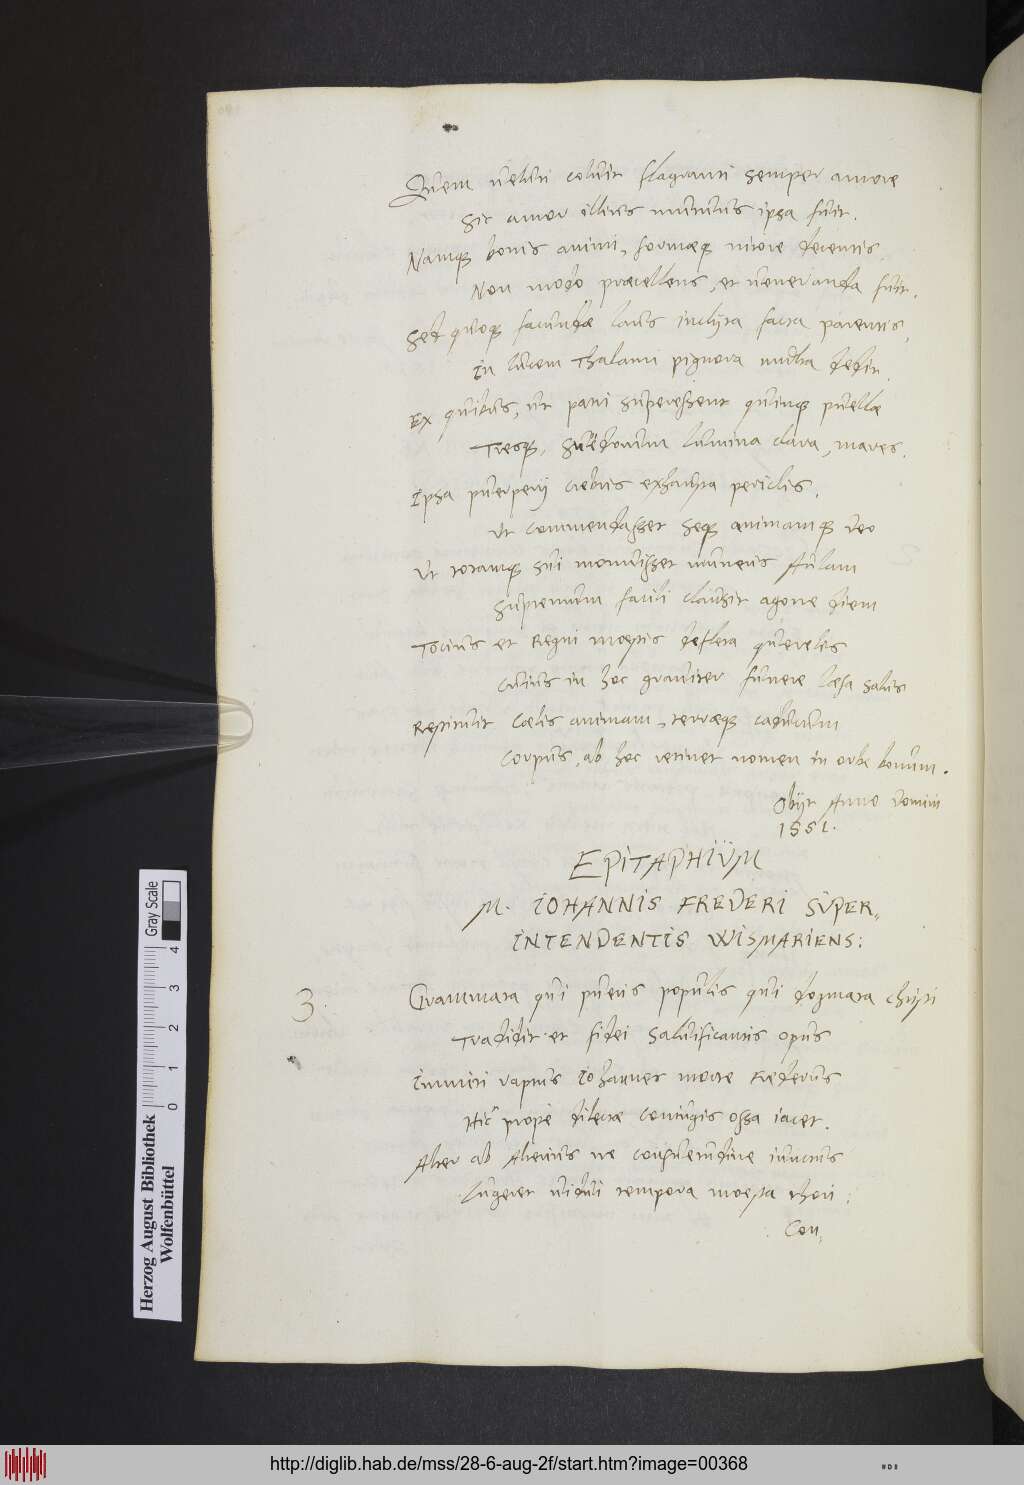 Quem veluti coluit flagranti semper amore
Sic amor illius mutuus ipsa fuit.
Namque bonis animi, formæque nitore decentis
Non modo præcellens, et veneranda fuit.
Sed quoque facundæ laus inclyta facta parentis,
In lucem thalami pignora multa dedit.
Ex quibus, ut patri superessent quinque puellæ
Tresque, Suedonum lumina clara, mares.
Ipsa puerperij crebris exhausta periclis,
Ut commendasset seque animamque Deo
Ut totamque sui monuisset muneris Aulam
Supremum facili clausit agone diem
Tocius et Regni moestis defleta querelis
Cuius in hoc graviter funere læsa salus
Restituit Cœlis animam, terræque caducum
Corpus, ab hoc retinet nomen in orbe bonum.
Obijt Anno Domini
1551.
EPITAPHIUM
M. IOHANNIS FREDERI SUPER,,
INTENDENTIS WISMARIENS:
3. Grammata qui pueris populis qui dogmata Christi
Tradidit et fidei salvificantis opus
Immiti raptus Iohannes morte Frederus
Hic prope dilectæ coniugis ossa iacet.
Alter ab Alterius ne consuetudine iunctus
Lugeret vidui tempora moesta thori:
Con,
Herzog August Bibliothek
Wolfenbüttel
0 1 2 3 4
Gray Scale
http://diglib.hab.de/mss/28-6-aug-2f/start.htm?image=00368